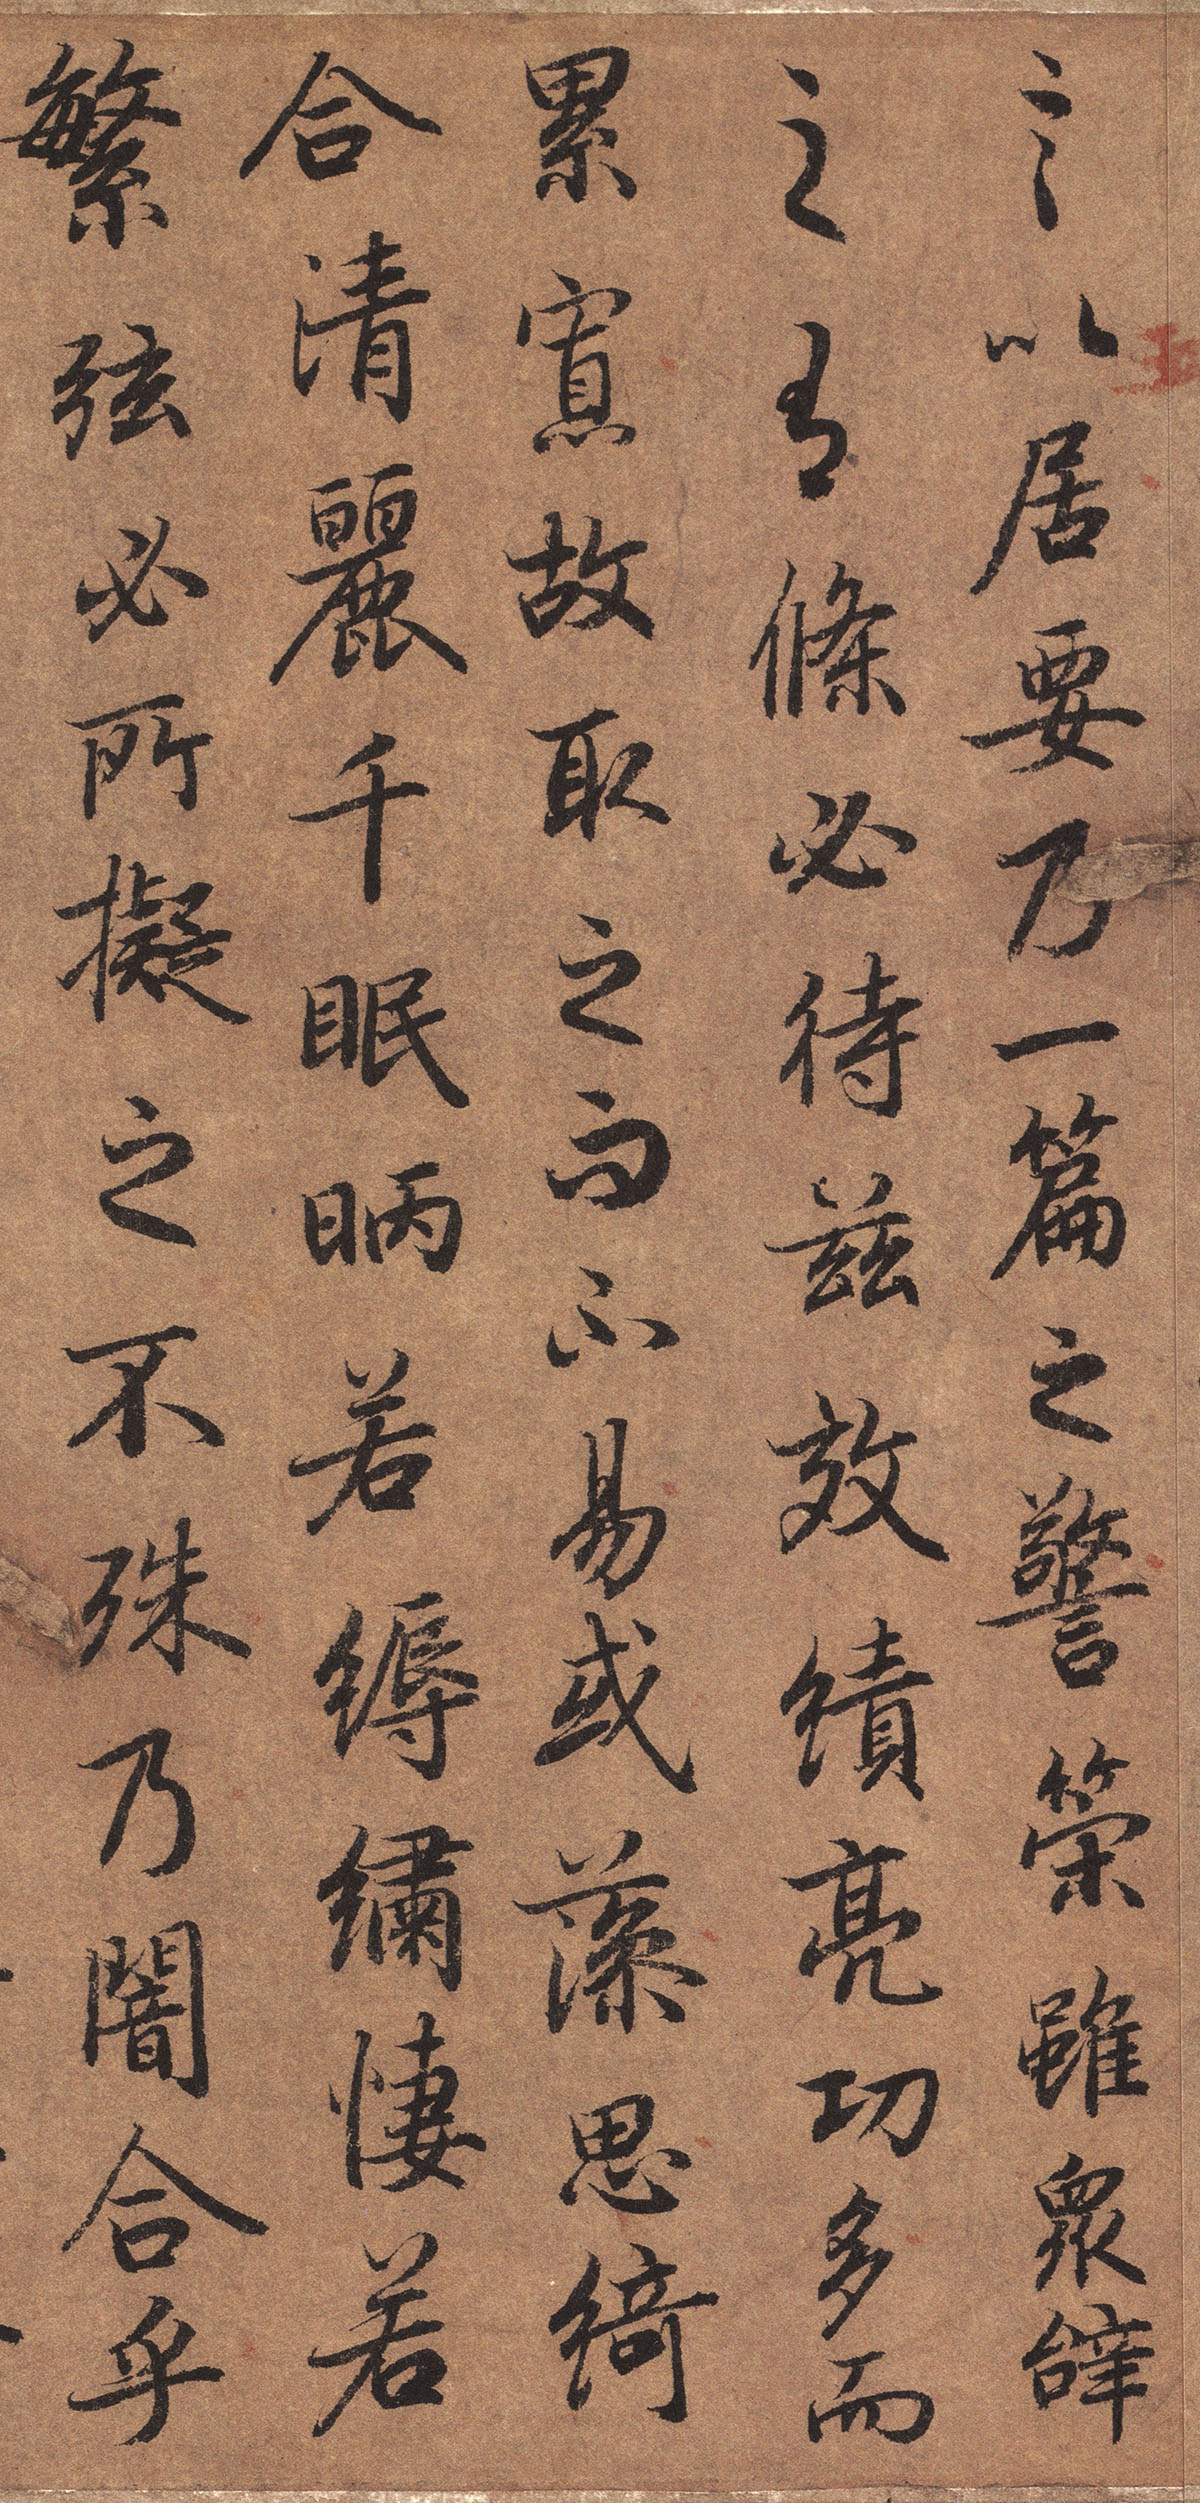 言以居要乃一篇之警策雖眾辭
之有條必待茲效績亮功多而
累寡故取之而不易或藻思綺
合清麗千眠昞若縟繡悽若
繁弦必所擬之不殊乃闇合乎